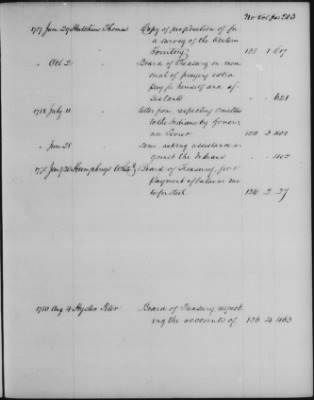 No Vol Pa 283
1787 Jun 29 Hutchins Thomas Copy of proposition of for
a survey of the Western
Territory 138 1 617
" Oct 2 " Board of Treasury on mem
orial of praying extra
pay for himself and as-
sistants " " 621
1788 July 11 " letter from respecting cruelties
to the Indians by Govern
or 150 3 401
" Jun 28 " Same asking assistance a
gainst the Indians " " 402
Jany 26 Humphreys Board of Treasury, for
Payment of balance due
to for 136 2 27
1780 Aug 4 Hyder Peter Board of Treasury respect
ing the accounts of. 136 4 463